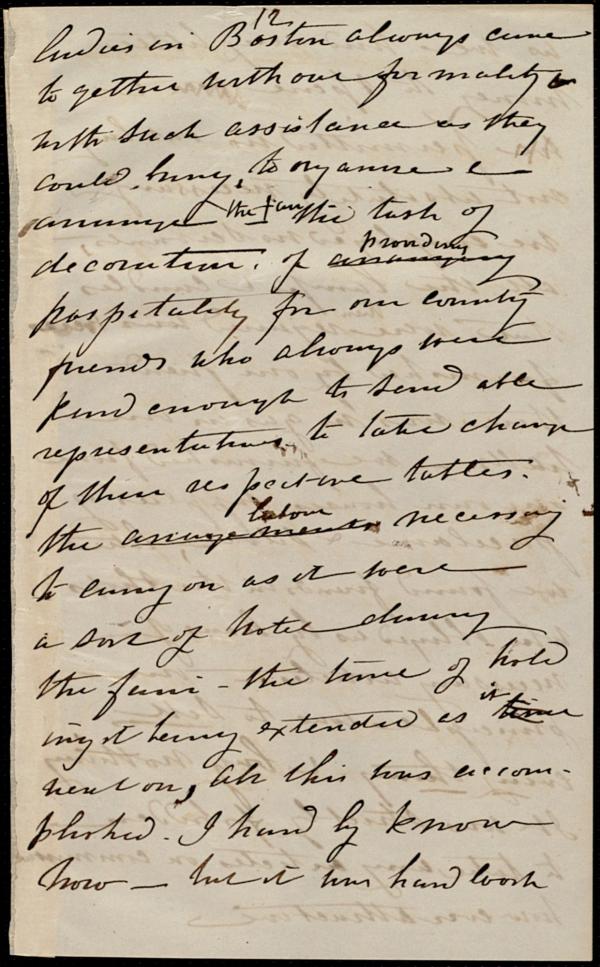 12
ladies in Boston always came
together without formality
with such assistance as they
could bring, to organise &
arrange the fair the task of
decoration. of arranging providing
hospitality for our country
friends who always were
kind enough to send able
representatives to take charge
of their respective tables.
the arrangements labour necessary
to carry on as it were
a sort of hotel during
the fair - the time of hold
ing it being extended as time it
went on, All this was accom-
plished. I hardly know
how — but it was hard work